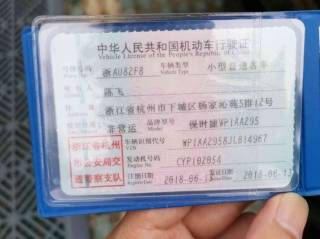 中华人民共和国机动车行驶证
Vehicle License of the People's Republic of China
号牌号码 浙AU82F8 车辆类型 小型普通客车
Vehicle Type
所有人 陈飞
住址 浙江省杭州市下城区杨家沁苑5排12号
使用性质 非营运 品牌型号 保时捷WP1AA295
浙江省杭州市公安局交通警察支队
车辆识别代号
VIN
发动机号码 CYP102054
注册日期 2018-06-13 发证日期 2018-06-13
Register Date Issue Date